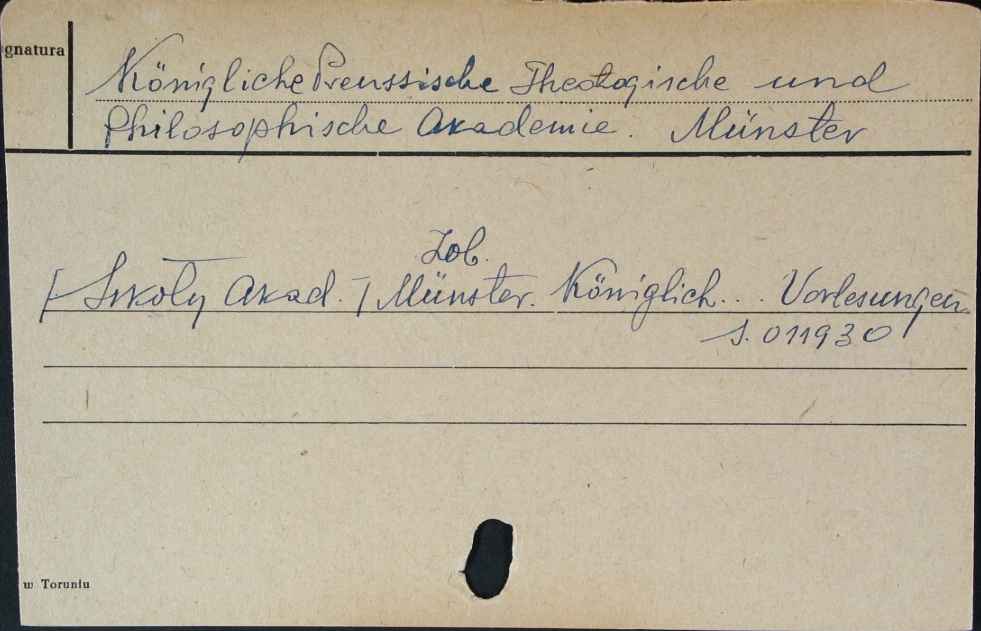 gnatura
Königliche Preussische Theologische und
Philosophische Akademie. Münster
Zob.
[Szkoły Akad.] Münster. Königlich... Vorlesungen.
S. 011930
w Toruniu